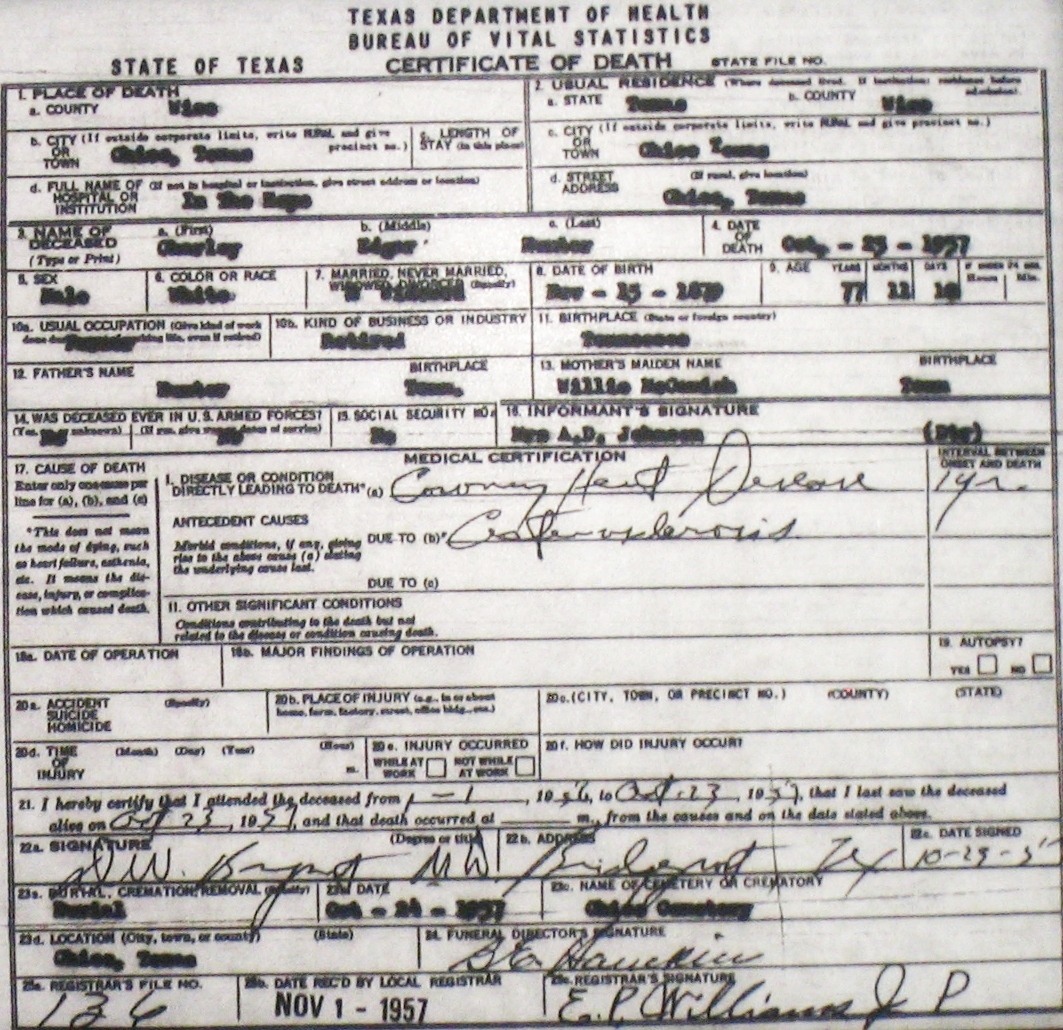 TEXAS DEPARTMENT OF HEALTH
BUREAU OF VITAL STATISTICS
STATE OF TEXAS CERTIFICATE OF DEATH STATE FILE NO.
1. PLACE OF DEATH
a. COUNTY Wise
2. USUAL RESIDENCE (Where deceased lived. If institution: residence before admission)
a. STATE Texas b. COUNTY Wise
b. CITY (If outside corporate limits, write RURAL and give precinct no.)
OR
TOWN Chico, Texas
c. LENGTH OF
STAY (in this place)
c. CITY (If outside corporate limits, write RURAL and give precinct no.)
OR
TOWN Chico Texas
d. FULL NAME OF (If not in hospital or institution, give street address or location)
HOSPITAL OR
INSTITUTION In The Home
d. STREET (If rural, give location)
ADDRESS Chico, Texas
3. NAME OF
DECEASED
(Type or Print)
a. (First)
Charley
b. (Middle)
Edgar
c. (Last)
4. DATE
OF
DEATH Oct. - 23 - 1957
5. SEX
Male
6. COLOR OR RACE
White
7. MARRIED, NEVER MARRIED,
WIDOWED, DIVORCED (Specify)
8. DATE OF BIRTH
Nov - 15 - 1879
9. AGE YEARS MONTHS DAYS IF UNDER 24 HRS.
Hours Min.
77 11
10a. USUAL OCCUPATION (Give kind of work
done during working life, even if retired)
10b. KIND OF BUSINESS OR INDUSTRY
Retired
11. BIRTHPLACE (State or foreign country)
Tennessee
12. FATHER'S NAME BIRTHPLACE
Tenn.
13. MOTHER'S MAIDEN NAME BIRTHPLACE
Willie Tenn
14. WAS DECEASED EVER IN U.S. ARMED FORCES?
(Yes, No, unknown) (If yes, give war or dates of service)
No No
15. SOCIAL SECURITY NO.
No
16. INFORMANT'S SIGNATURE
Mrs A.D. Johnson
MEDICAL CERTIFICATION
INTERVAL BETWEEN
ONSET AND DEATH
17. CAUSE OF DEATH
Enter only one cause per
line for (a), (b), and (c)
*This does not mean
the mode of dying, such
as heart failure, asthenia,
etc. It means the dis-
ease, injury, or complica-
tion which caused death.
I. DISEASE OR CONDITION
DIRECTLY LEADING TO DEATH* (a) Coronary Heart Disease 1 yr.
ANTECEDENT CAUSES
Morbid conditions, if any, giving
rise to the above cause (a) stating
the underlying cause last.
DUE TO (b) Arteriosclerosis
DUE TO (c)
11. OTHER SIGNIFICANT CONDITIONS
Conditions contributing to the death but not
related to the disease or condition causing death.
18a. DATE OF OPERATION
18b. MAJOR FINDINGS OF OPERATION
19. AUTOPSY?
YES NO
20a. ACCIDENT (Specify)
SUICIDE
HOMICIDE
20b. PLACE OF INJURY (e.g., in or about
home, farm, factory, street, office bldg., etc.)
20c. (CITY, TOWN, OR PRECINCT NO.) (COUNTY) (STATE)
20d. TIME (Month) (Day) (Year) (Hour)
OF
INJURY m.
20e. INJURY OCCURRED
WHILE AT WORK NOT WHILE AT WORK
20f. HOW DID INJURY OCCUR?
21. I hereby certify that I attended the deceased from 1-1, 1956, to Oct-23, 1957, that I last saw the deceased
alive on Oct 23, 1957, and that death occurred at m., from the causes and on the date stated above.
22a. SIGNATURE (Degree or title)
MD
22b. ADDRESS
Bridgeport Tex
22c. DATE SIGNED
10-29-5
23a. BURIAL, CREMATION, REMOVAL (Specify)
Burial
23b. DATE
Oct - 24 - 1957
23c. NAME OF CEMETERY OR CREMATORY
Chico Cemetery
23d. LOCATION (City, town, or county) (State)
Chico, Texas
24. FUNERAL DIRECTOR'S SIGNATURE
25a. REGISTRAR'S FILE NO.
136
25b. DATE REC'D BY LOCAL REGISTRAR
NOV 1 - 1957
25c. REGISTRAR'S SIGNATURE
E. P. Williams J P